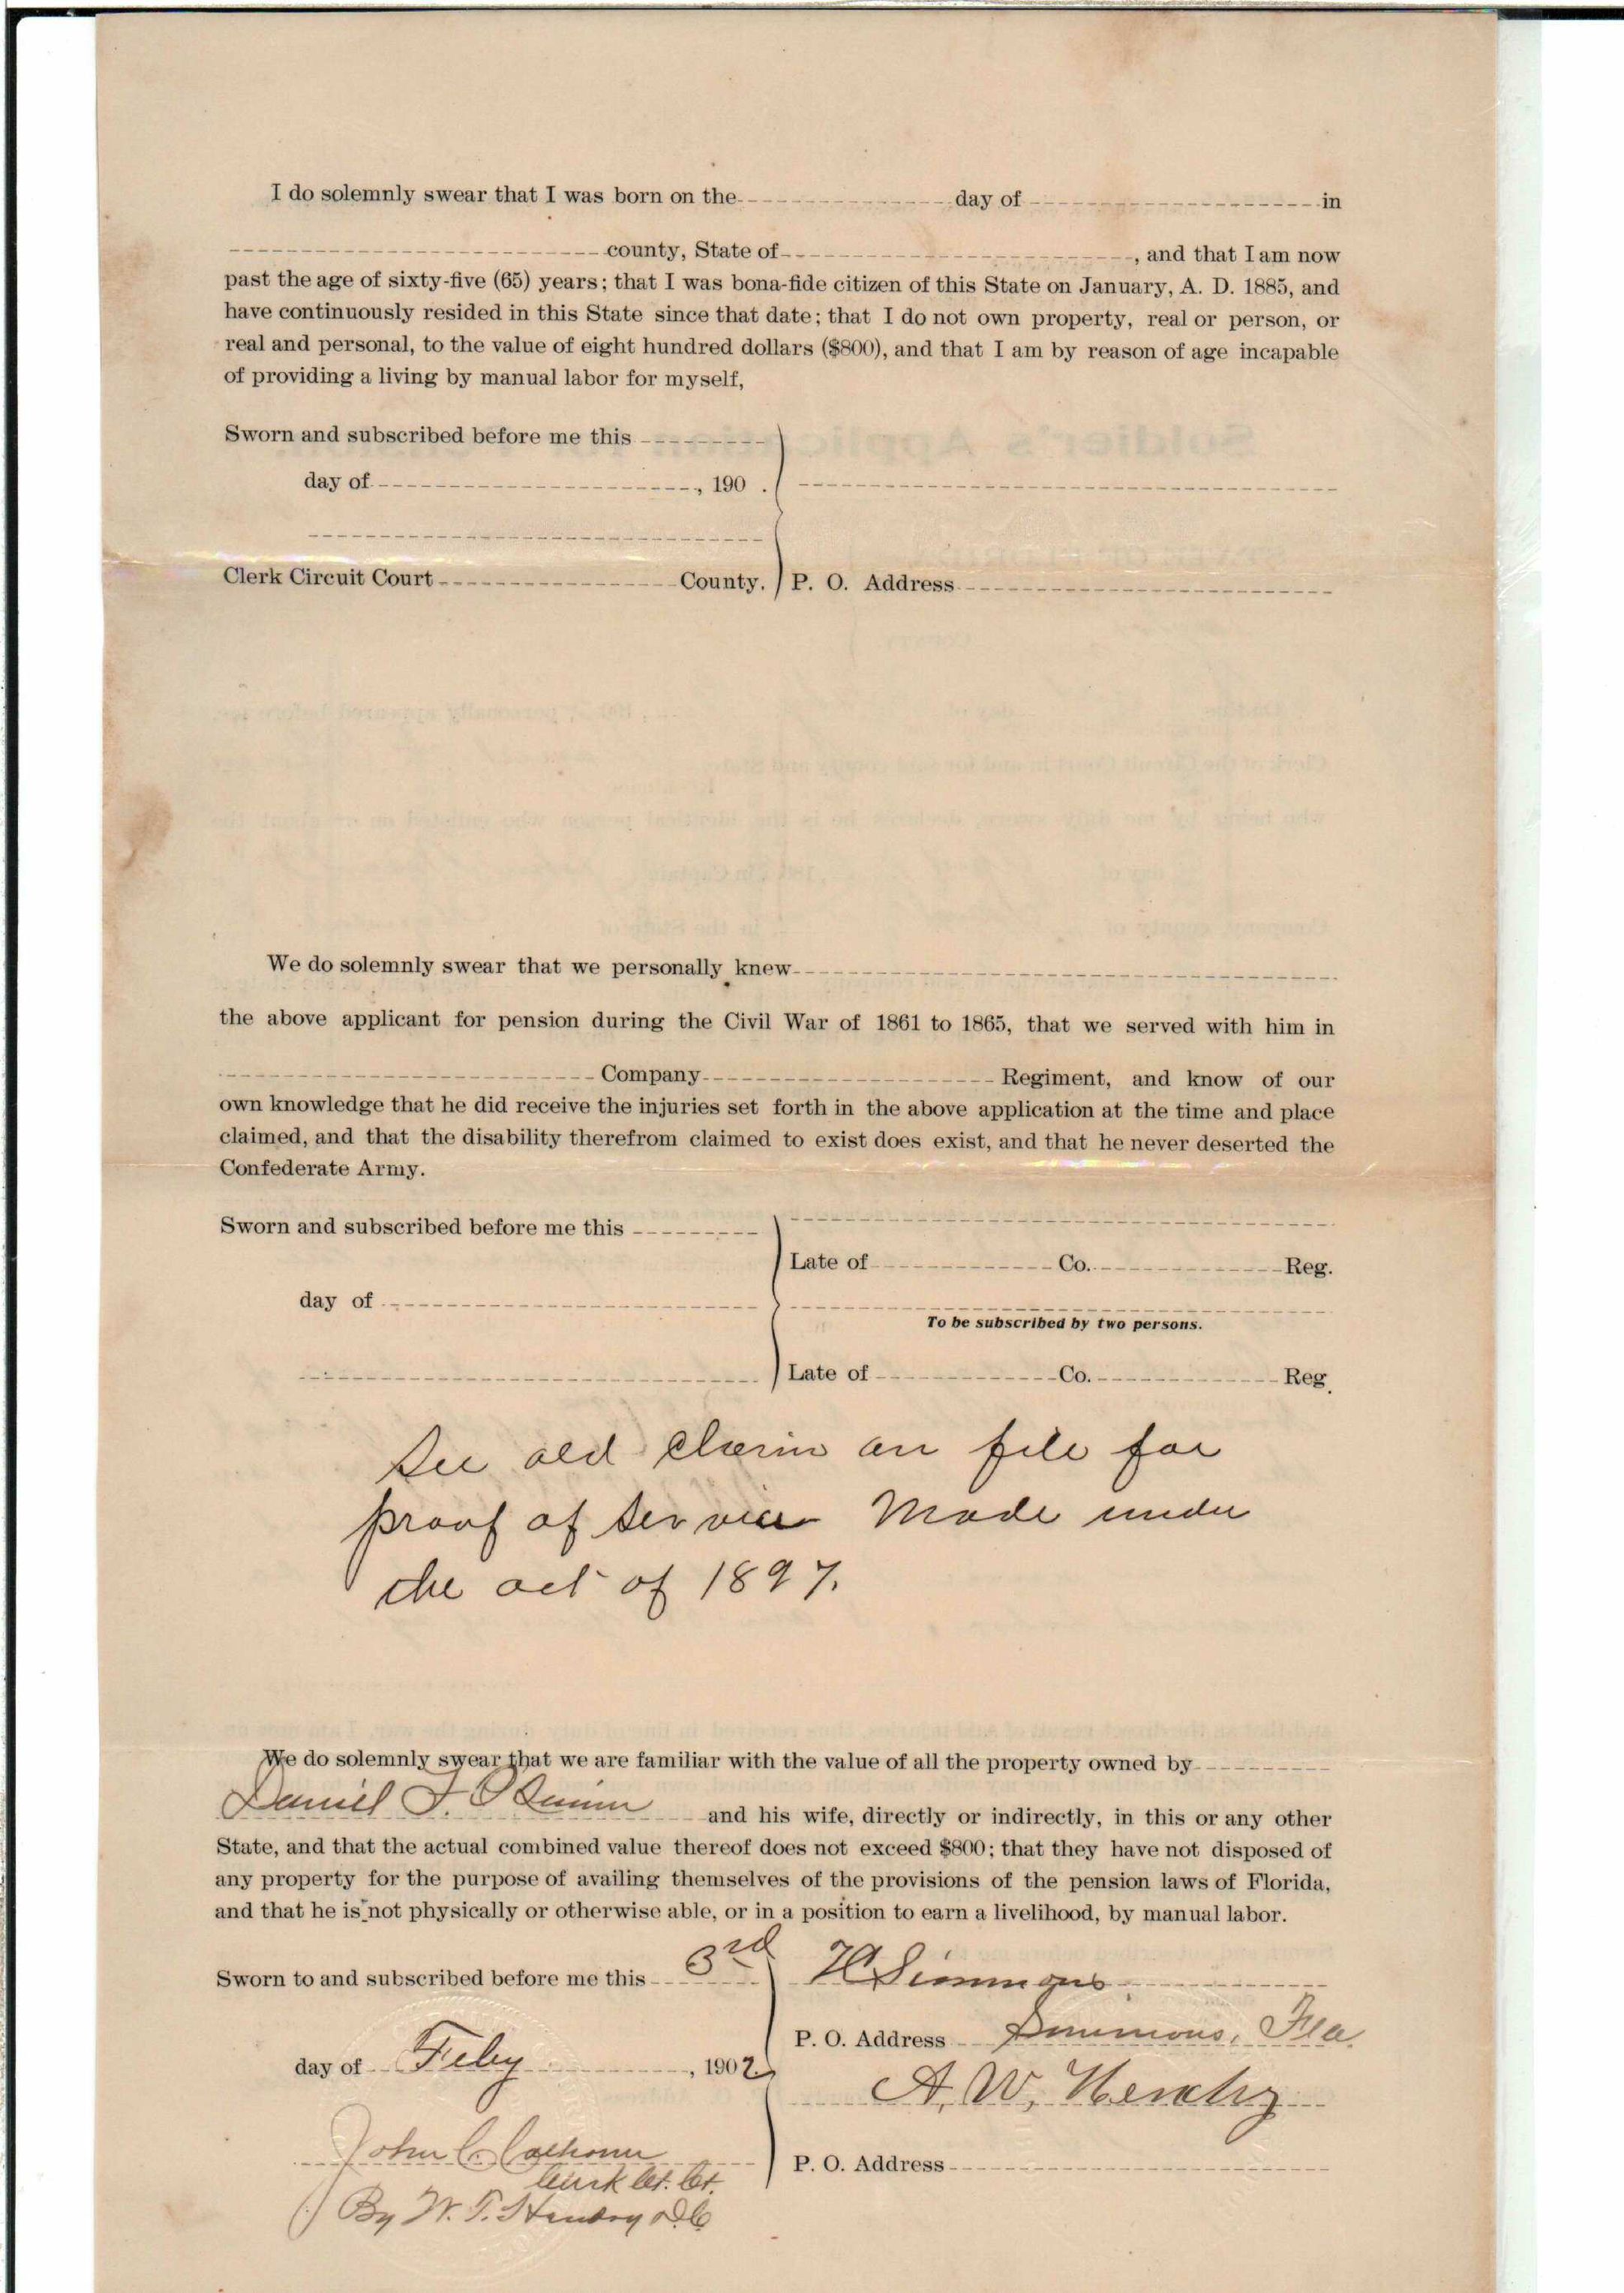 I do solemnly swear that I was born on the day of in
county, State of , and that I am now
past the age of sixty-five (65) years; that I was bona-fide citizen of this State on January, A. D. 1885, and
have continuously resided in this State since that date; that I do not own property, real or person, or
real and personal, to the value of eight hundred dollars ($800), and that I am by reason of age incapable
of providing a living by manual labor for myself,
Sworn and subscribed before me this
day of , 190 .
Clerk Circuit Court County. P. O. Address
We do solemnly swear that we personally knew
the above applicant for pension during the Civil War of 1861 to 1865, that we served with him in
Company Regiment, and know of our
own knowledge that he did receive the injuries set forth in the above application at the time and place
claimed, and that the disability therefrom claimed to exist does exist, and that he never deserted the
Confederate Army.
Sworn and subscribed before me this
Late of Co. Reg.
day of
To be subscribed by two persons.
Late of Co. Reg.
See old claim on file for
proof of service Made under
the act of 1897.
We do solemnly swear that we are familiar with the value of all the property owned by
Daniel and his wife, directly or indirectly, in this or any other
State, and that the actual combined value thereof does not exceed $800; that they have not disposed of
any property for the purpose of availing themselves of the provisions of the pension laws of Florida,
and that he is not physically or otherwise able, or in a position to earn a livelihood, by manual labor.
Sworn to and subscribed before me this 3rd H Simmons
P. O. Address Simmons, Fla.
day of Feby , 1902
A. W.
John C. Calhoun
P. O. Address
Clerk Ct. Ct.
By W. T. Hendry D.C.